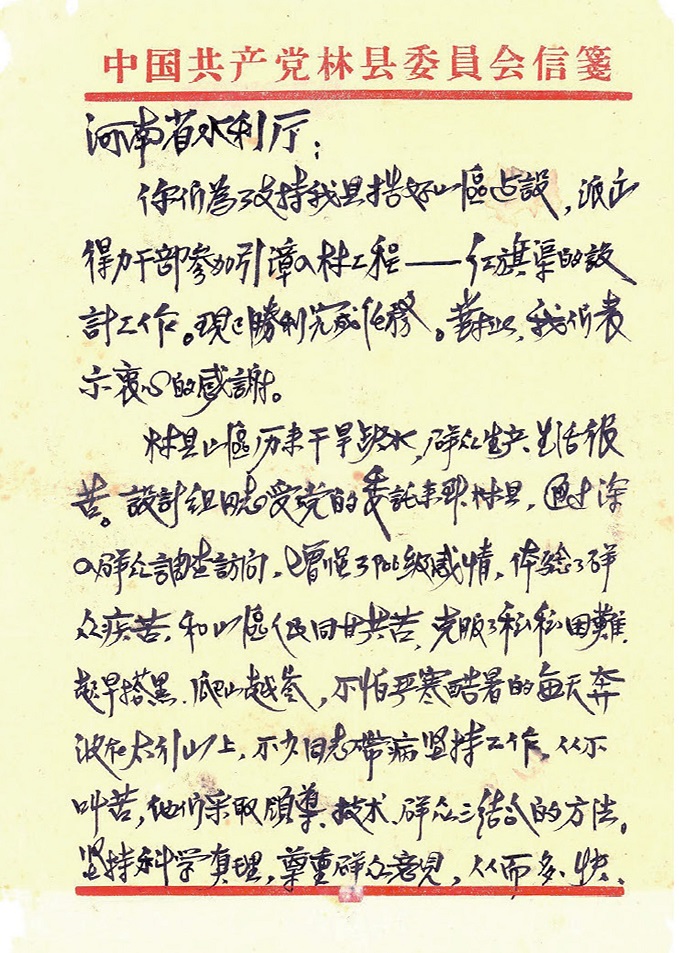 中国共产党林县委員会信箋
河南省水利厅：
你们為了支持我县搞好山區建設，派出
得力干部参加引漳入林工程——红旗渠的設
計工作。現已勝利完成任務。對此，我们表
示衷心的感謝。
林县山區历来干旱缺水，群众生产、生活很
苦。設計組同志受党的委託来到林县，通过深
入群众調查訪问，增强了阶级感情，体验了群
众疾苦，和山區人民同甘共苦，克服了种种困難，
起早搭黑、爬山越岭，不怕严寒酷暑的每天奔
波在太行山上，不少同志帶病坚持工作，从不
叫苦，他们采取領導、技术、群众三结合的方法。
坚持科学真理，尊重群众意見，从而多、快、